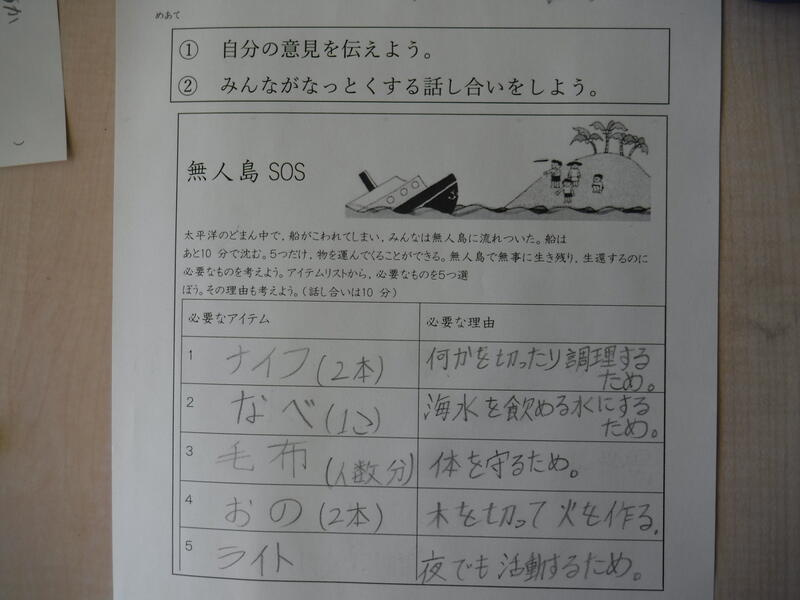 めあて
① 自分の意見を伝えよう。
② みんながなっとくする話し合いをしよう。
無人島 SOS
太平洋のどまん中で，船がこわれてしまい，みんなは無人島に流れついた。船は
あと10 分で沈む。5つだけ，物を運んでくることができる。無人島で無事に生き残り，生還するのに
必要なものを考えよう。アイテムリストから，必要なものを5つ選
ぼう。その理由も考えよう。（話し合いは10 分）
必要なアイテム 必要な理由
1 ナイフ(2本) 何かを切ったり調理する
ため。
2 なべ(1こ) 海水を飲める水にする
ため。
3 毛布(人数分) 体を守るため。
4 おの(2本) 木を切って火を作る.
5 ライト 夜でも活動するため。